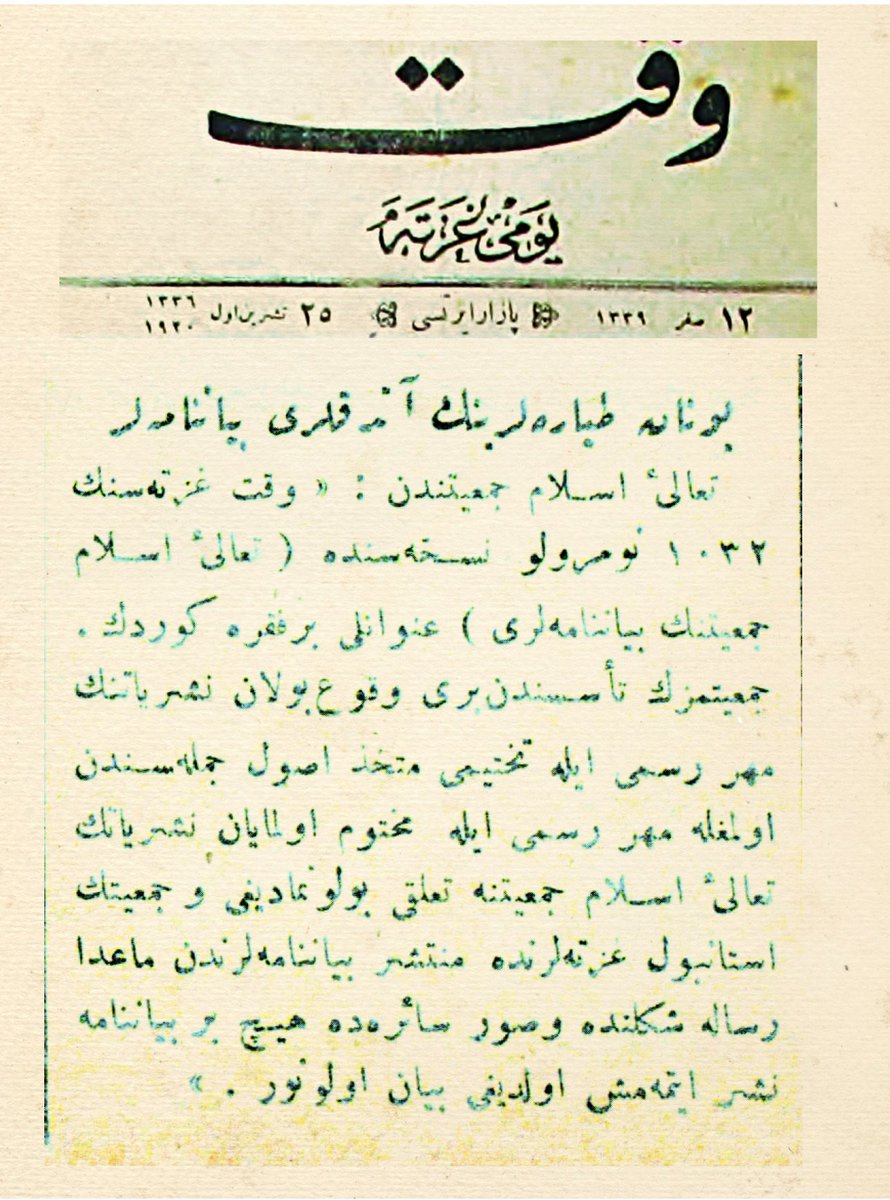 وقت
يومى غزته در
١٢ صفر ١٣٣٩ پازار ايرتسى ٢٥ تشرين اول ١٣٣٦ ١٩٢٠
يونان طياره لرينك آتدقلرى بياننامه لر
تعالئ اسلام جمعيتندن : « وقت غزته سنك
١٠٣٢ نومرولو نسخه سنده ( تعالئ اسلام
جمعيتنك بياننامه لرى ) عنوانلى بر فقره كوردك .
جمعيتمزك تأسسندن برى وقوع بولان نشرياتنك
مهر رسمى ايله تختيمى متخذ اصول جمله سندن
اولمغله مهر رسمى ايله مختوم اولمايان نشرياتك
تعالئ اسلام جمعيتنه تعلقى بولونماديغى و جمعيتك
استانبول غزته لرنده منتشر بياننامه لرندن ماعدا
رساله شكلنده وصور سائره ده هيچ بر بياننامه
نشر ايتمه مش اولديغى بيان اولونور . »